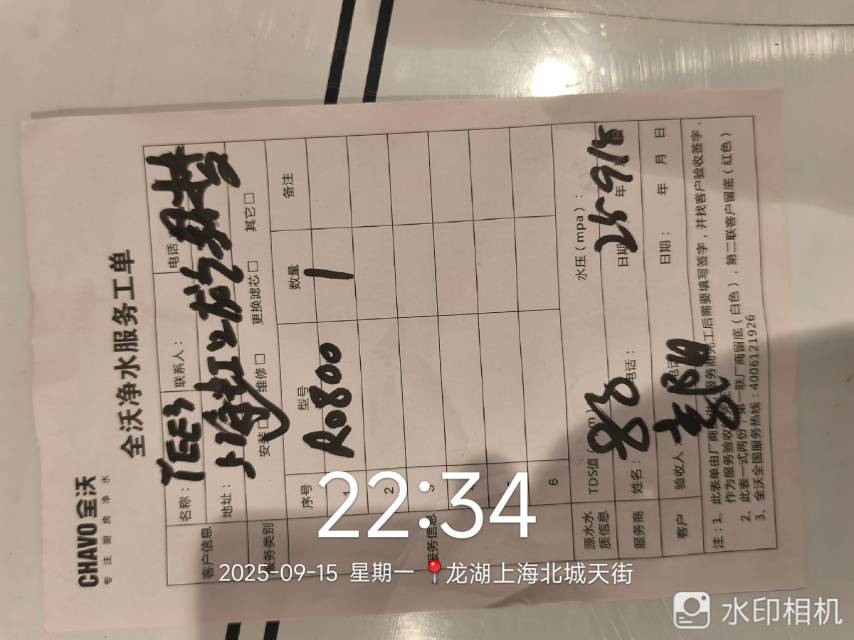 CHAVO全沃
专注厨房净水
全沃净水服务工单
客户信息
名称: TEES 联系人: 电话
地址: 上海虹口
服务类别 安装□ 维修□ 更换滤芯□ 其它□
服务信息
序号 型号 数量 备注
1 Ro800 1
2
6
源水水质信息 TDS值 水压(mpa):
服务商 姓名: 电话: 日期 25年9/15
客户 验收人 日期: 年 月 日
注:1、此表单由厂商 服务商完工后需要填写签字,并找客户验收签字,
作为服务验收
2、此表一式两份,第一联厂商留底(白色),第二联客户留底(红色)
3、全沃全国服务热线:4006121926
22:34
2025-09-15 星期一 龙湖上海北城天街
水印相机